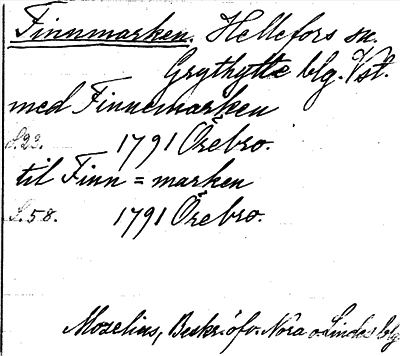 Finnmarken. Hellefors sn.
Grythytte blg. Vstl.
med Finnemarken
S.23. 1791 Örebro.
til Finn=marken
S.58. 1791 Örebro.
Mozelius, Beskr. öfv. Nora o. Lindes blg.